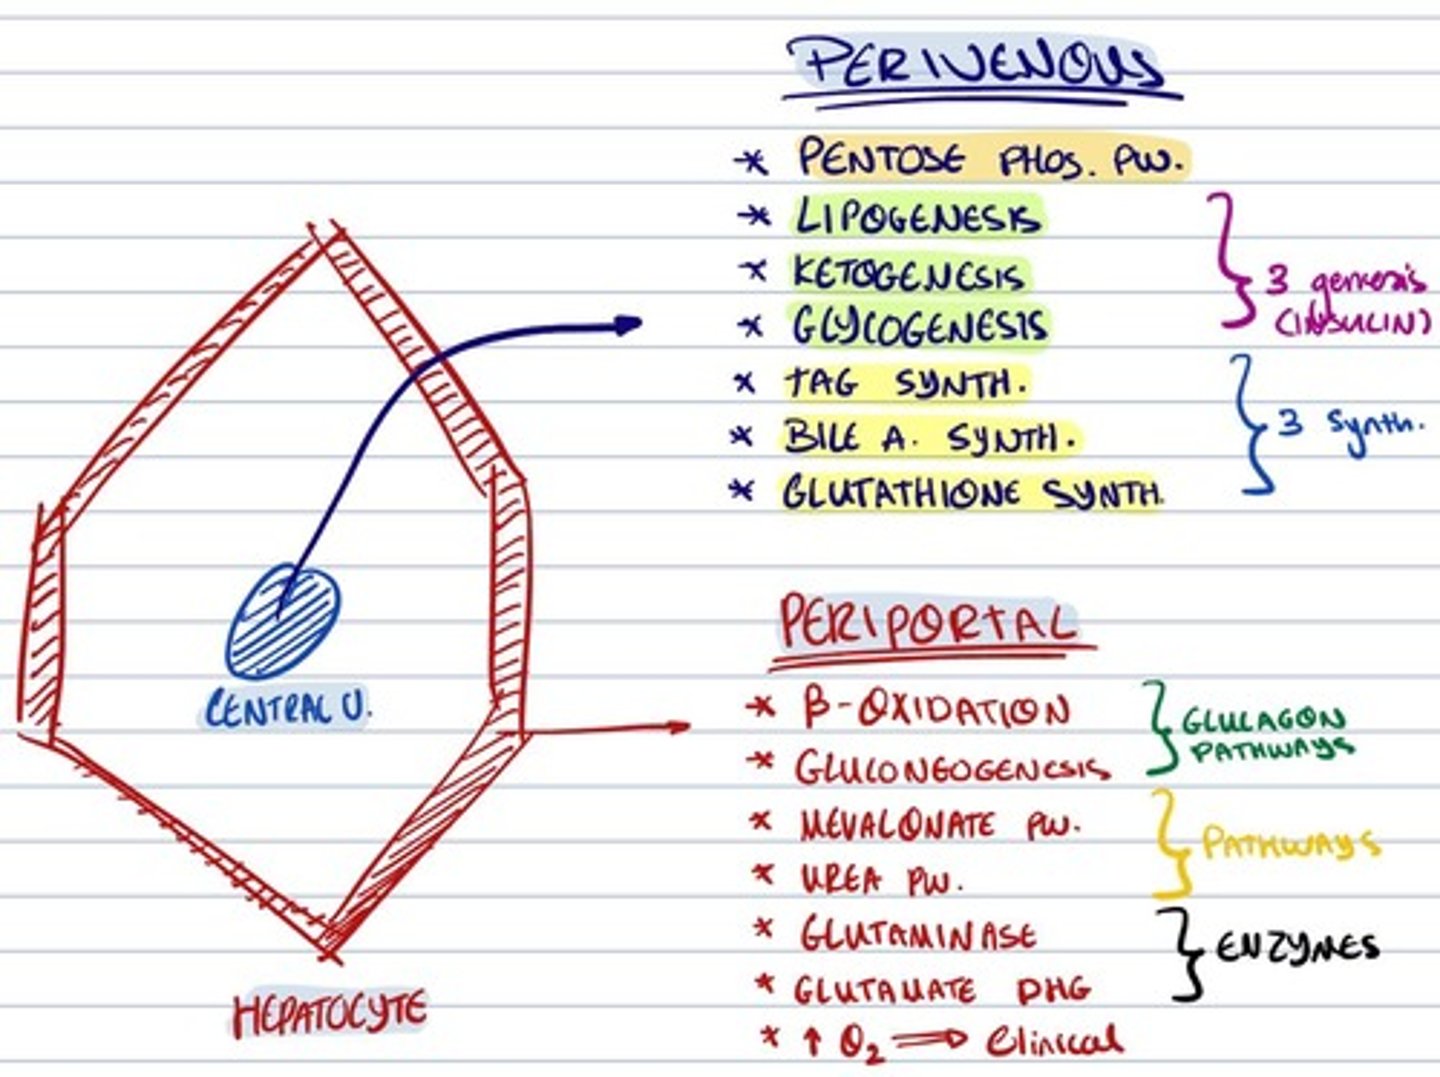 PERIVENOUS
* PENTOSE PHOS. PW.
* LIPOGENESIS
* KETOGENESIS
* GLYCOGENESIS
} 3 genesis
(INSULIN)
* TAG SYNTH.
* BILE A. SYNTH.
* GLUTATHIONE SYNTH.
} 3 Synth.
CENTRAL V.
HEPATOCYTE
PERIPORTAL
* β-OXIDATION
* GLUCONEOGENESIS
} GLULAGON
PATHWAYS
* MEVALONATE PW.
* UREA PW.
} PATHWAYS
* GLUTAMINASE
* GLUTAMATE DHG
} ENZYMES
* ↑ O₂ ⇒ Clinical